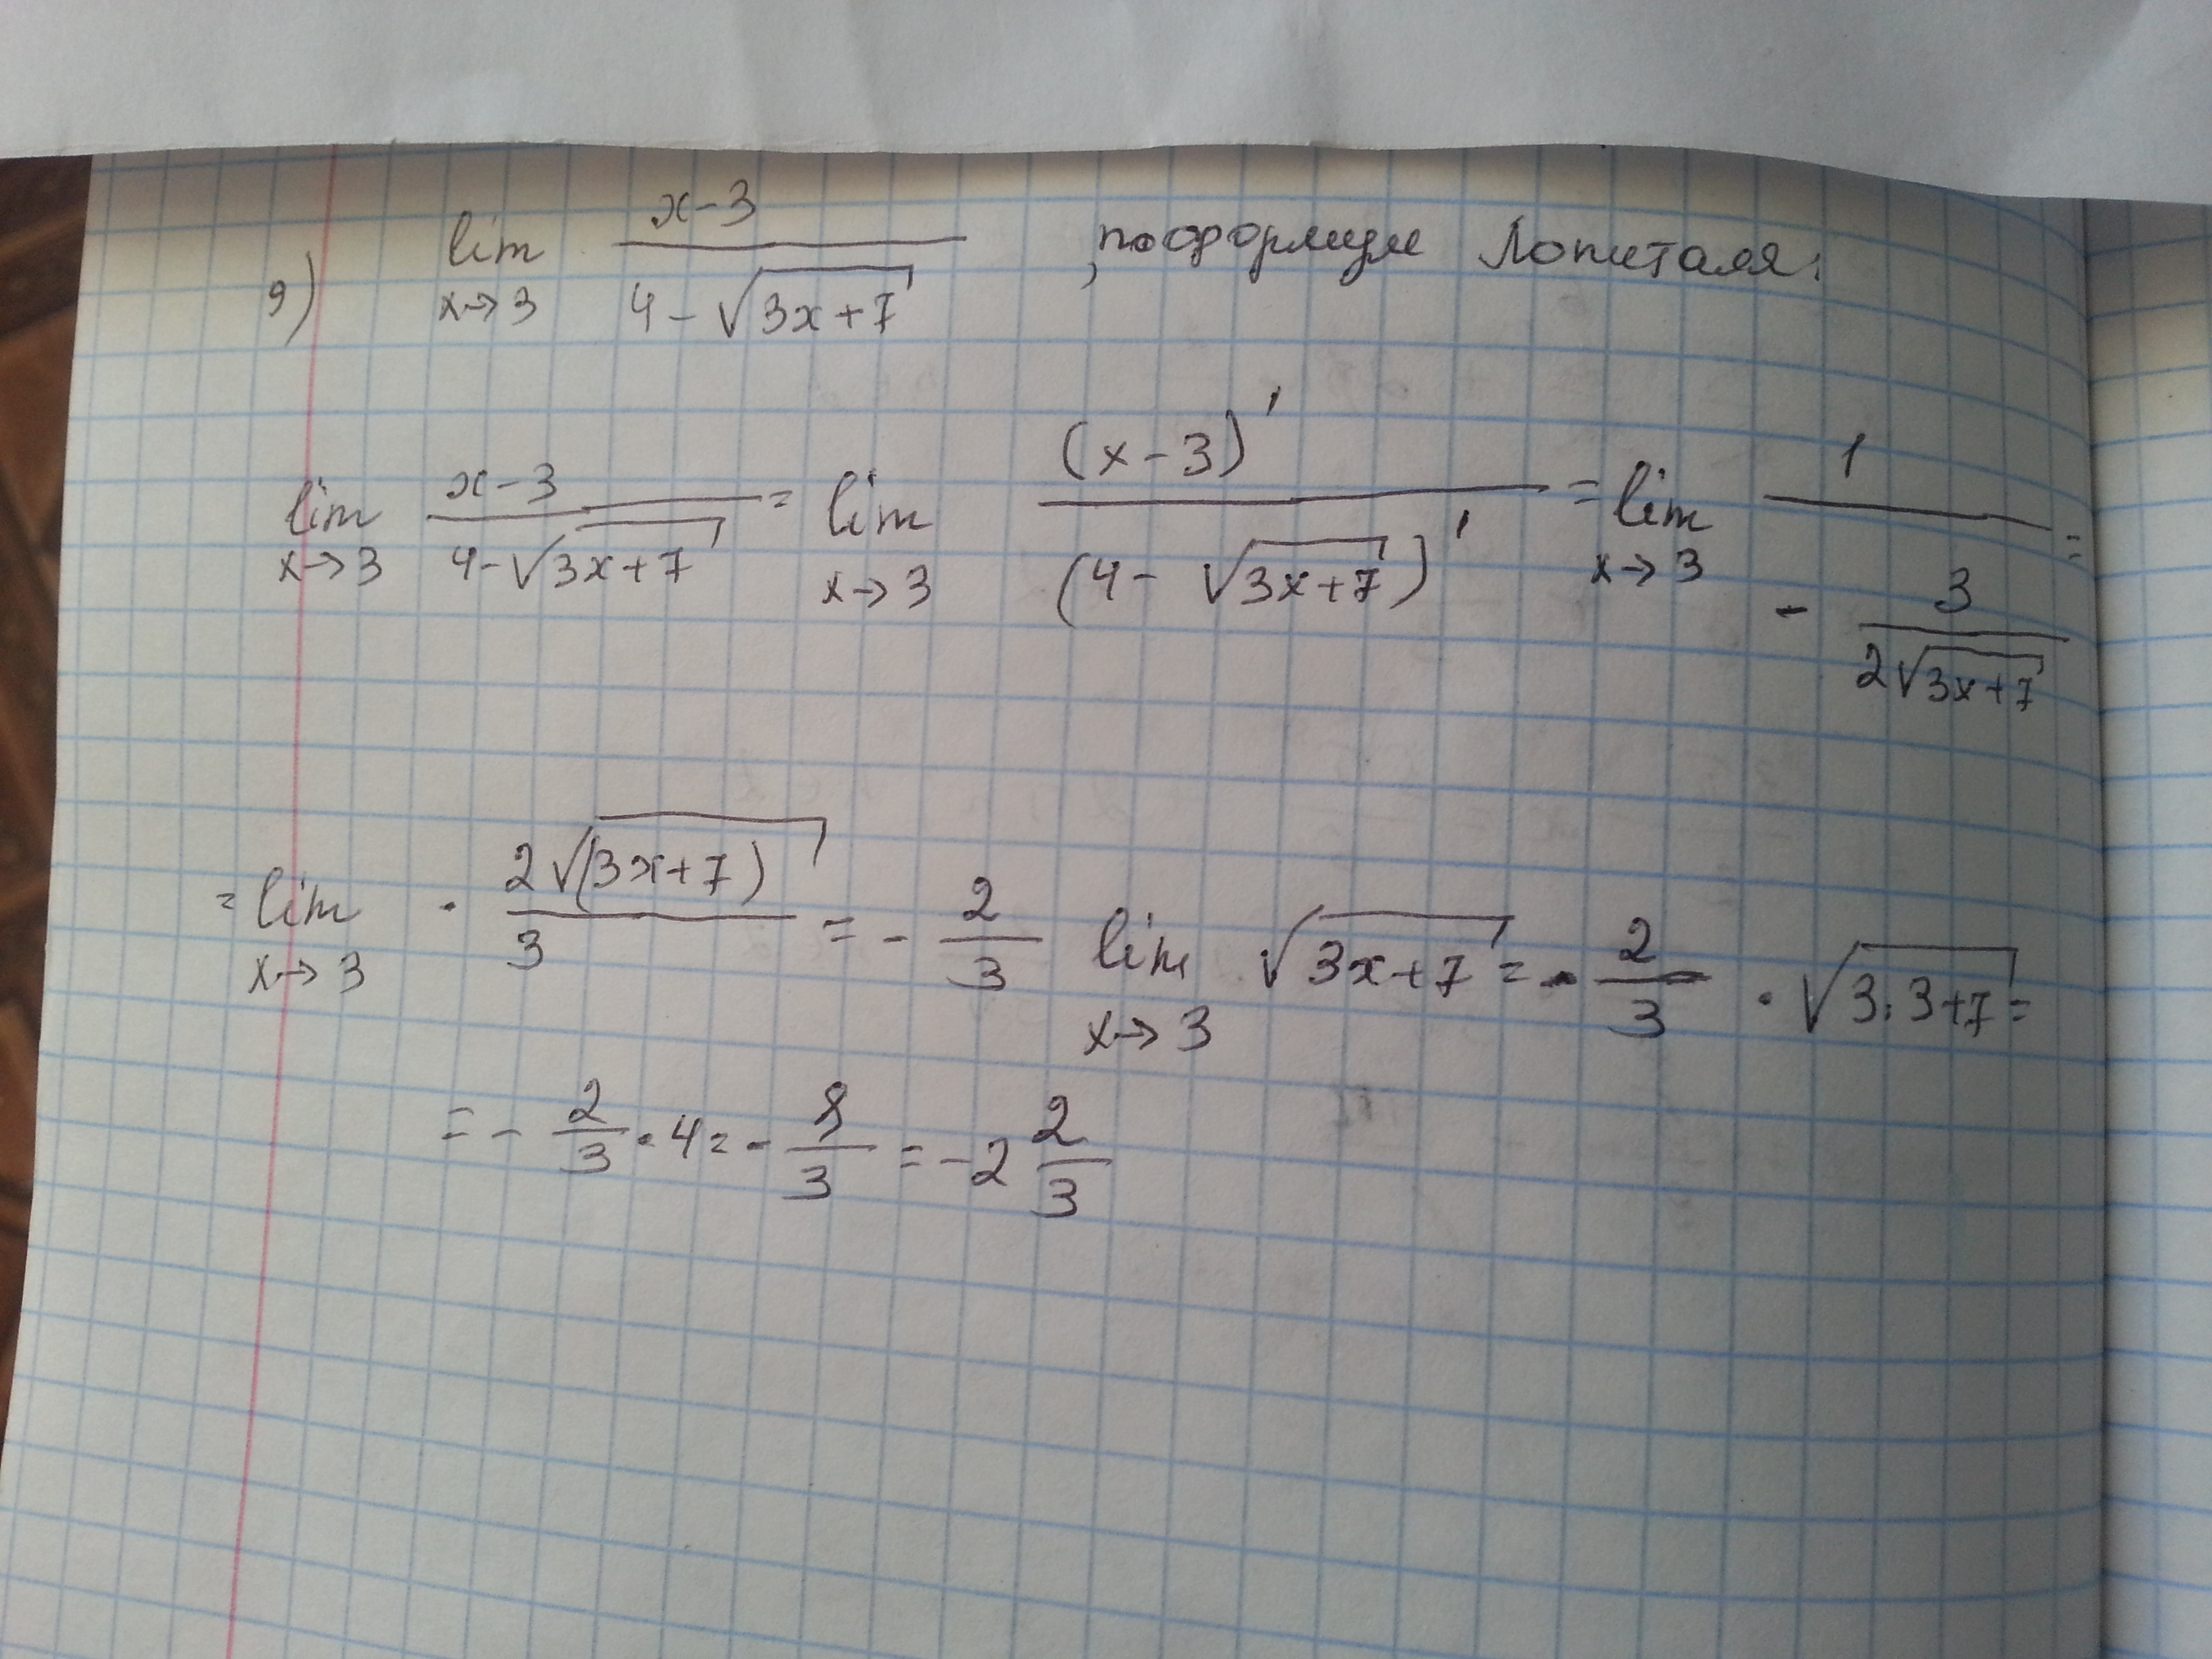 9) lim x→3 (x-3)/(4-√(3x+7)) , по формуле Лопиталя:
lim x→3 (x-3)/(4-√(3x+7)) = lim x→3 (x-3)'/(4-√(3x+7))' = lim x→3 1/(-3/(2√(3x+7))) =
= lim x→3 - 2√((3x+7))/3 = -2/3 lim x→3 √(3x+7) = -2/3 · √(3·3+7) =
= -2/3 · 4 = -8/3 = -2 2/3